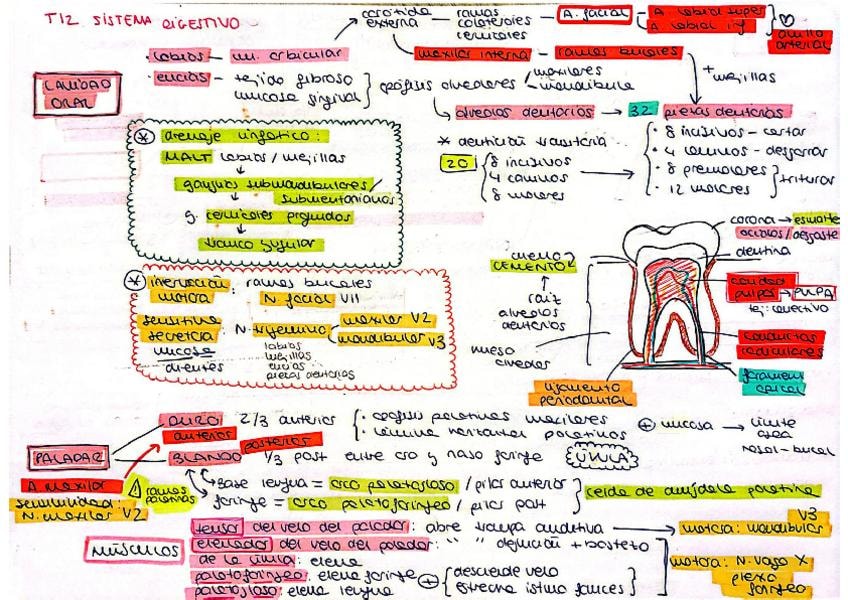 T12 SISTEMA DIGESTIVO
carótida externa → ramas colaterales cervicales → A. facial — A. labial super
A. labial inf
anillo arterial
maxilar interna — ramas bucales
+ mejillas
· labios — m. orbicular
· encías — tejido fibroso
mucosa gingival
apófisis alveolares
maxilares
mandíbula
CAVIDAD ORAL
alveolos dentarios → 32 piezas dentarias
· 8 incisivos - cortar
· 4 caninos - desgarrar
· 8 premolares
· 12 molares
triturar
* dentición transitoria
20
8 incisivos
4 caninos
8 molares
* drenaje linfático:
MALT labios / mejillas
ganglios submandibulares/
submentonianos
g. cervicales profundos
tronco yugular
* inervación motora: ramas bucales
N. facial VII
sensitiva
secretora
N. trigémino
maxilar V2
mandibular V3
mucosa
dientes
labios
mejillas
encías
piezas dentarias
corona → esmalte
ácidos / desgaste
dentina
cavidad pulpar → PULPA
tej. conectivo
conductos radiculares
foramen apical
cuello
CEMENTO
raíz
alveolos dentarios
hueso alveolar
ligamento periodontal
PALADAR
DURO 2/3 anterior
anterior
· apófisis palatinas maxilares
· lámina horizontal palatinos
+ mucosa → límite
nasal-bucal
posterior
BLANDO 1/3 post entre oro y naso faringe
ÚVULA
A. maxilar
ramas palatinas
sensibilidad:
N. maxilar V2
base lengua = arco palatogloso / pilar anterior
faringe = arco palatofaríngeo / pilar post
celda de amígdala palatina
MÚSCULOS
tensor del velo del paladar: abre trompa auditiva → motora: mandibular V3
elevador del velo del paladar: " " deglución + bostezo
de la úvula: eleva
palatofaríngeo: eleva faringe
palatogloso: eleva lengua
+
desciende velo
estrecha istmo fauces
motora: N. vago X
plexo faríngeo